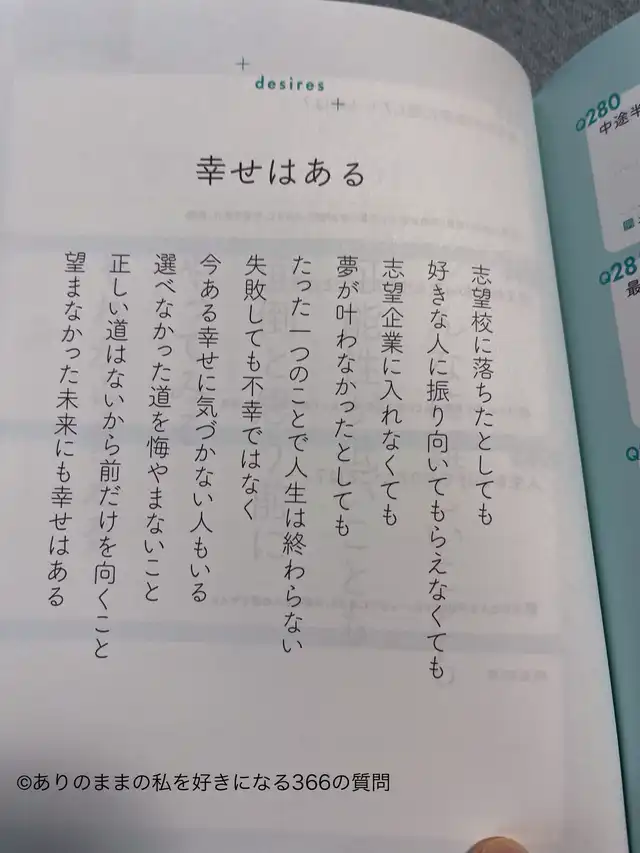 desires
幸せはある
志望校に落ちたとしても
好きな人に振り向いてもらえなくても
志望企業に入れなくても
夢が叶わなかったとしても
たった一つのことで人生は終わらない
失敗しても不幸ではなく
今ある幸せに気づかない人もいる
選べなかった道を悔やまないこと
正しい道はないから前だけを向くこと
望まなかった未来にも幸せはある
Q280
中途半
Q28
最
Q
©ありのままの私を好きになる366の質問